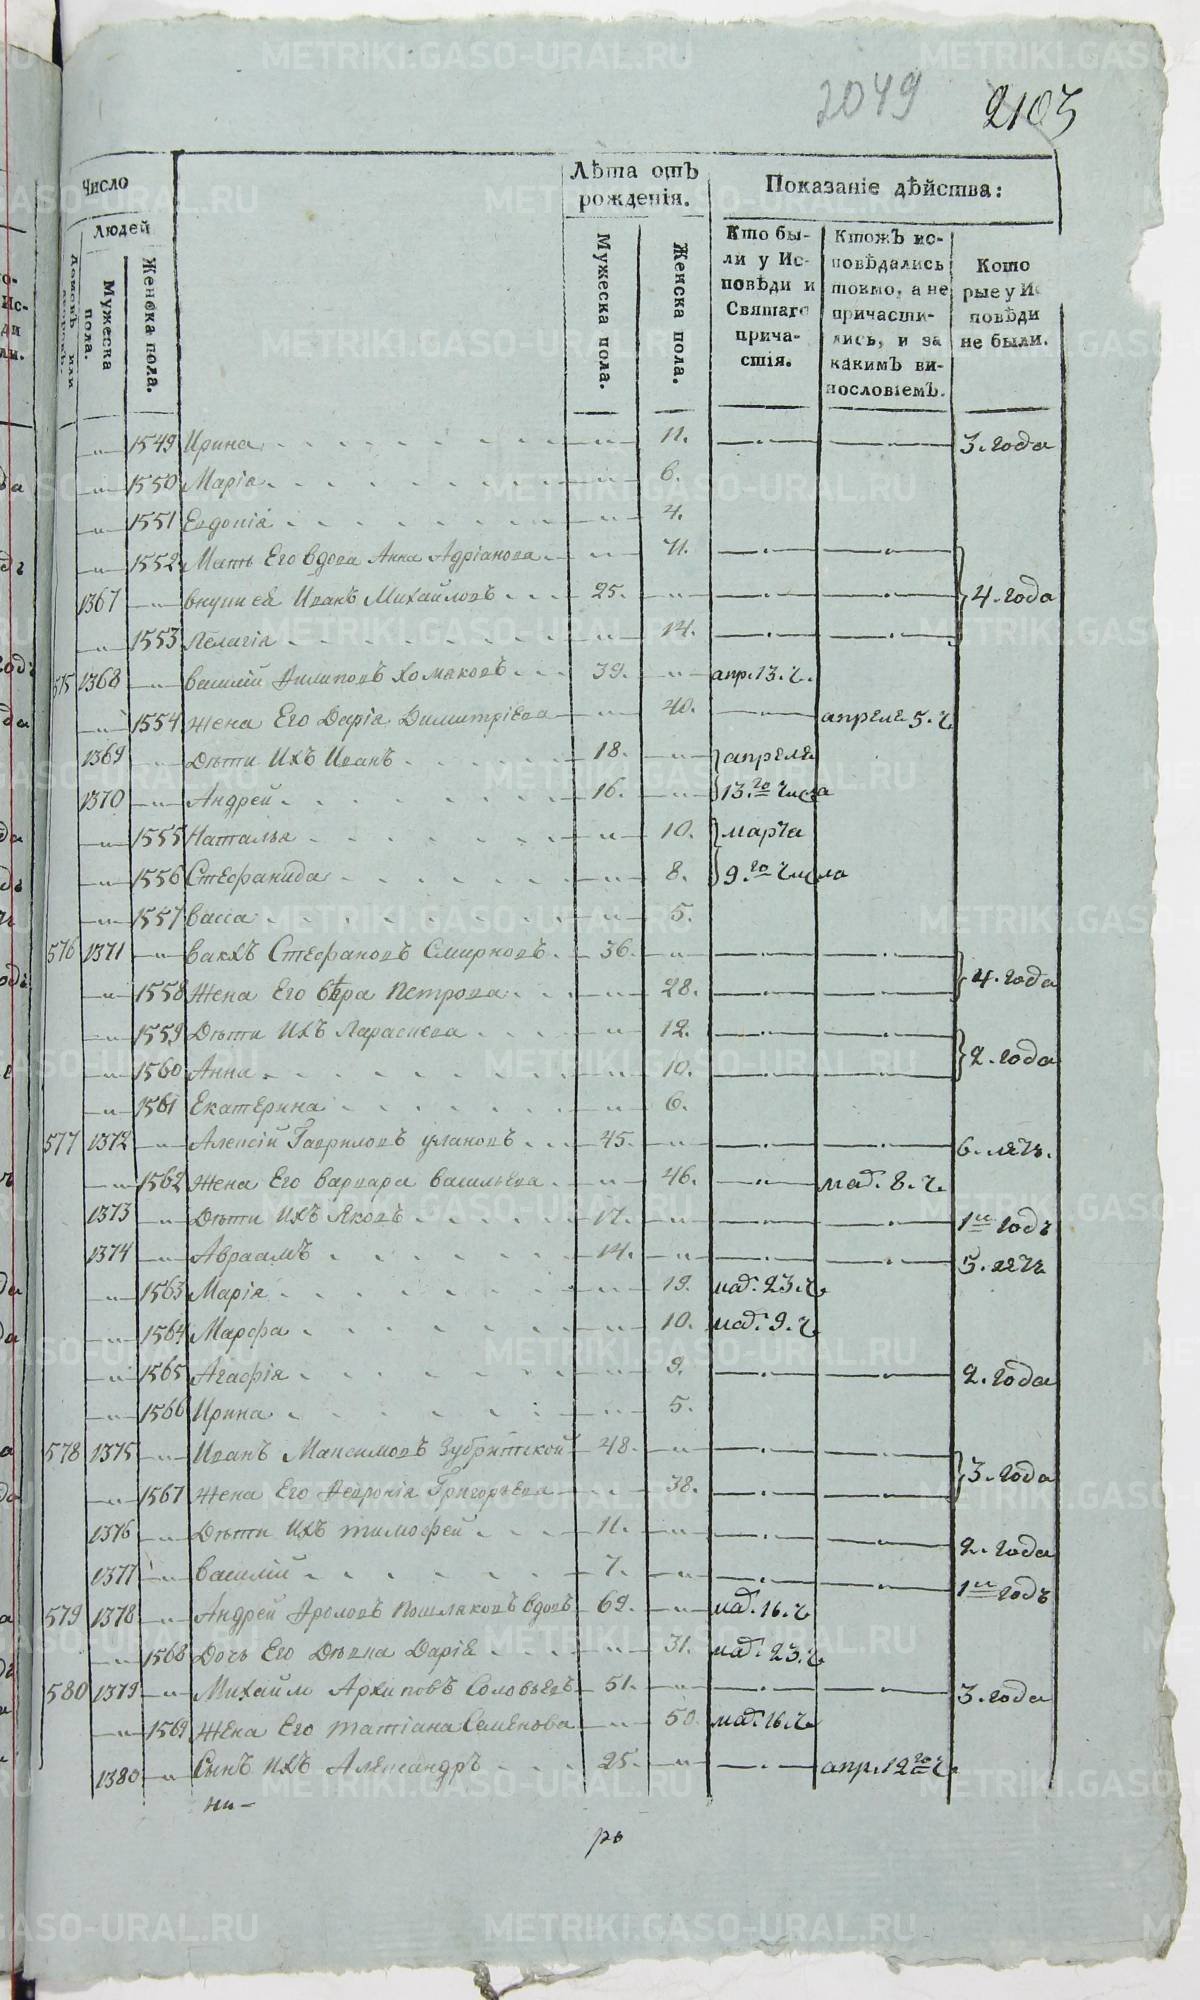 2049 2103
Число
Людей
Домовъ или дворовъ.
Мужеска пола.
Женска пола.
Лѣта отъ рожденія.
Мужеска пола.
Женска пола.
Показаніе дѣйства:
Кто бы-
ли у Ис-
повѣди и
Святаго
прича-
стія.
Ктожъ ис-
повѣдались
токмо, а не
причасти-
лись, и за
какимъ ви-
нословіемъ.
Кото
рые у Ис
повѣди
не были.
1549 Ирина 11. 3. года
1550 Марія 6.
1551 Евдокія 4.
1552 Мать Его вдова Анна Адріанова 71.
1367 внуки ея Иванъ Михайловъ 25. 4. года
1553 Пелагія 14.
575 1368 Василій Филиповъ Хомяковъ 39. апр. 13. ч.
1554 Жена Его Дарія Димитріева 40. апреля 5. ч
1369 Дѣти Ихъ Иванъ 18. апреля
1370 Андрей 16. 13.го числа
1555 Наталья 10. марта
1556 Стефанида 8. 9.го числа
1557 Васса 5.
576 1371 Вакхъ Стефановъ Смирновъ 36. 4. года
1558 Жена Его Вѣра Петрова 28.
1559 Дѣти Ихъ Параскева 12. 2. года
1560 Анна 10.
1561 Екатерина 6.
577 1372 Алексій Гавриловъ Улановъ 45. 6. летъ.
1562 Жена Его Варвара Васильева 46. маѣ. 8. ч.
1373 Дѣти Ихъ Яковъ 17. 1й годъ
1374 Авраамъ 14. 5. летъ
1563 Марія 19. маѣ. 23. ч.
1564 Марфа 10. маѣ. 9. ч.
1565 Агафія 9. 2. года
1566 Ирина 5.
578 1375 Иванъ Максимовъ Зубритской 48. 3. года
1567 Жена Его Февронія Григорьева 38.
1376 Дѣти Ихъ Тимофей 11. 2. года
1377 Василій 7. 1й годъ
579 1378 Андрей Фроловъ Пошляковъ вдовъ 69. маѣ. 16. ч
1568 Дочь Его Дѣвка Дарія 31. маѣ. 23. ч
580 1379 Михайло Архиповъ Соловьевъ 51. 3. года
1569 Жена Его Татіана Семенова 50. маѣ. 16. ч.
1380 Сынъ Ихъ Александръ 25. апр. 12го ч.
METRIKI.GASO-URAL.RU